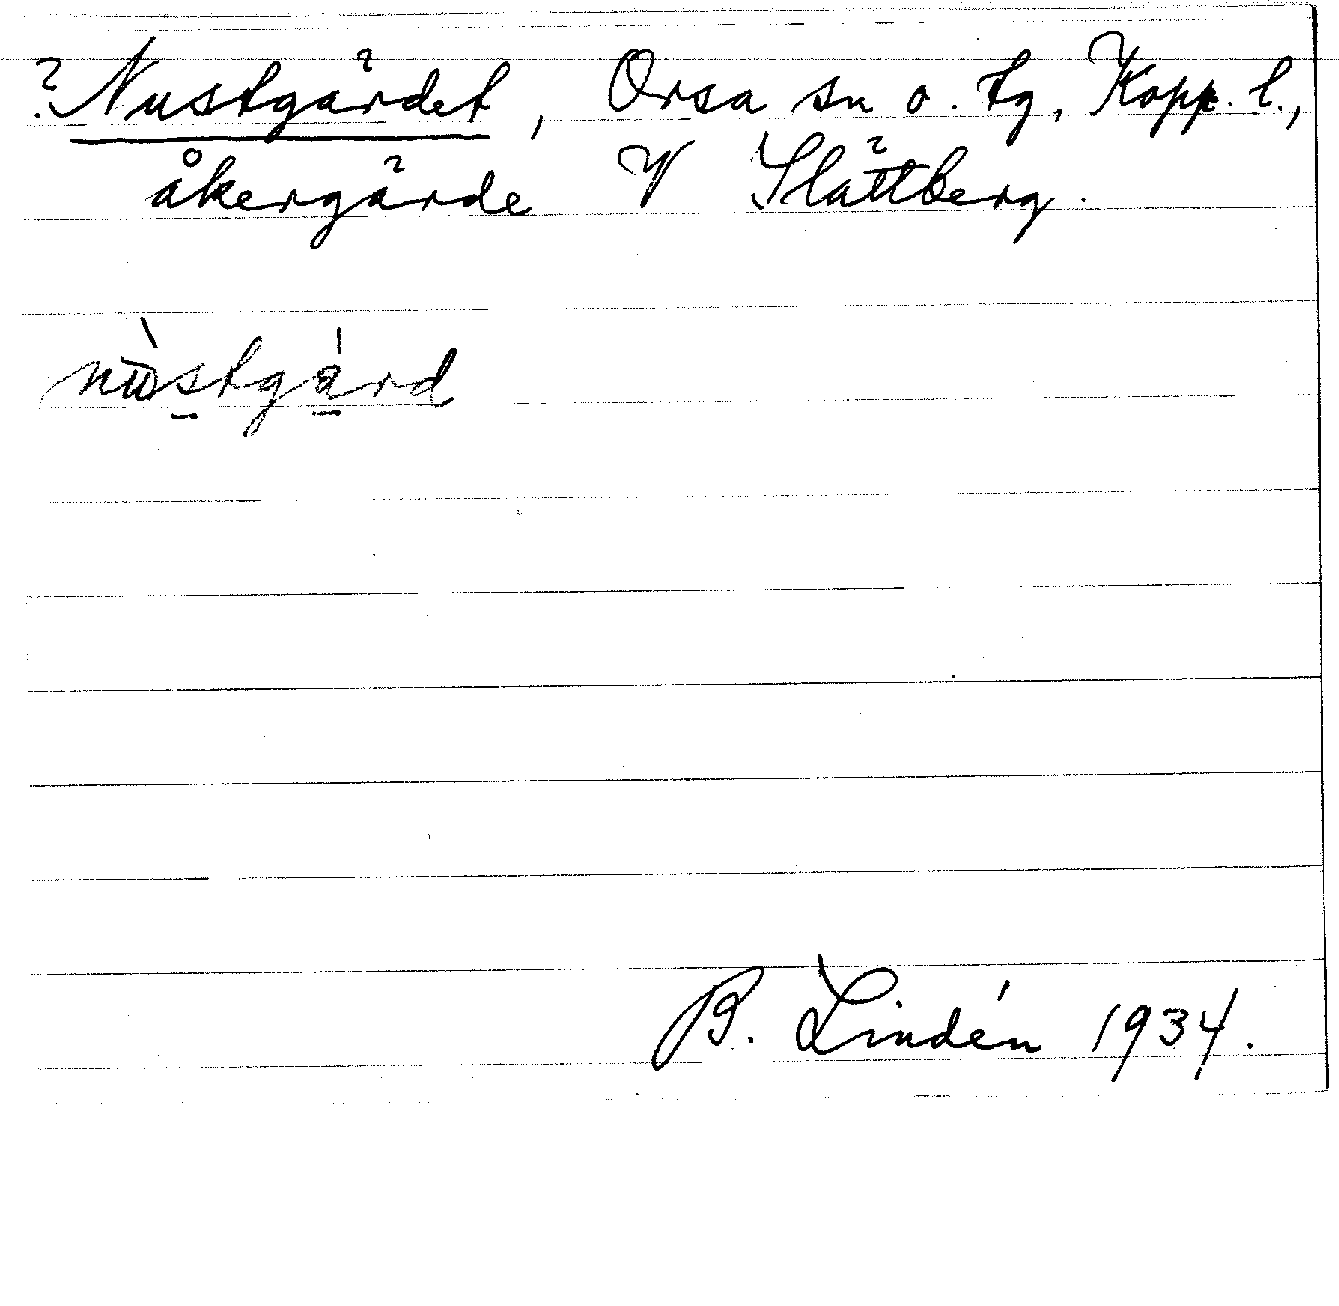 ? Nustgärdet, Orsa sn o. tg, Kopp. l.,
åkergärde V Slättberg.
nùstgá̱rd
B. Lindén 1934.